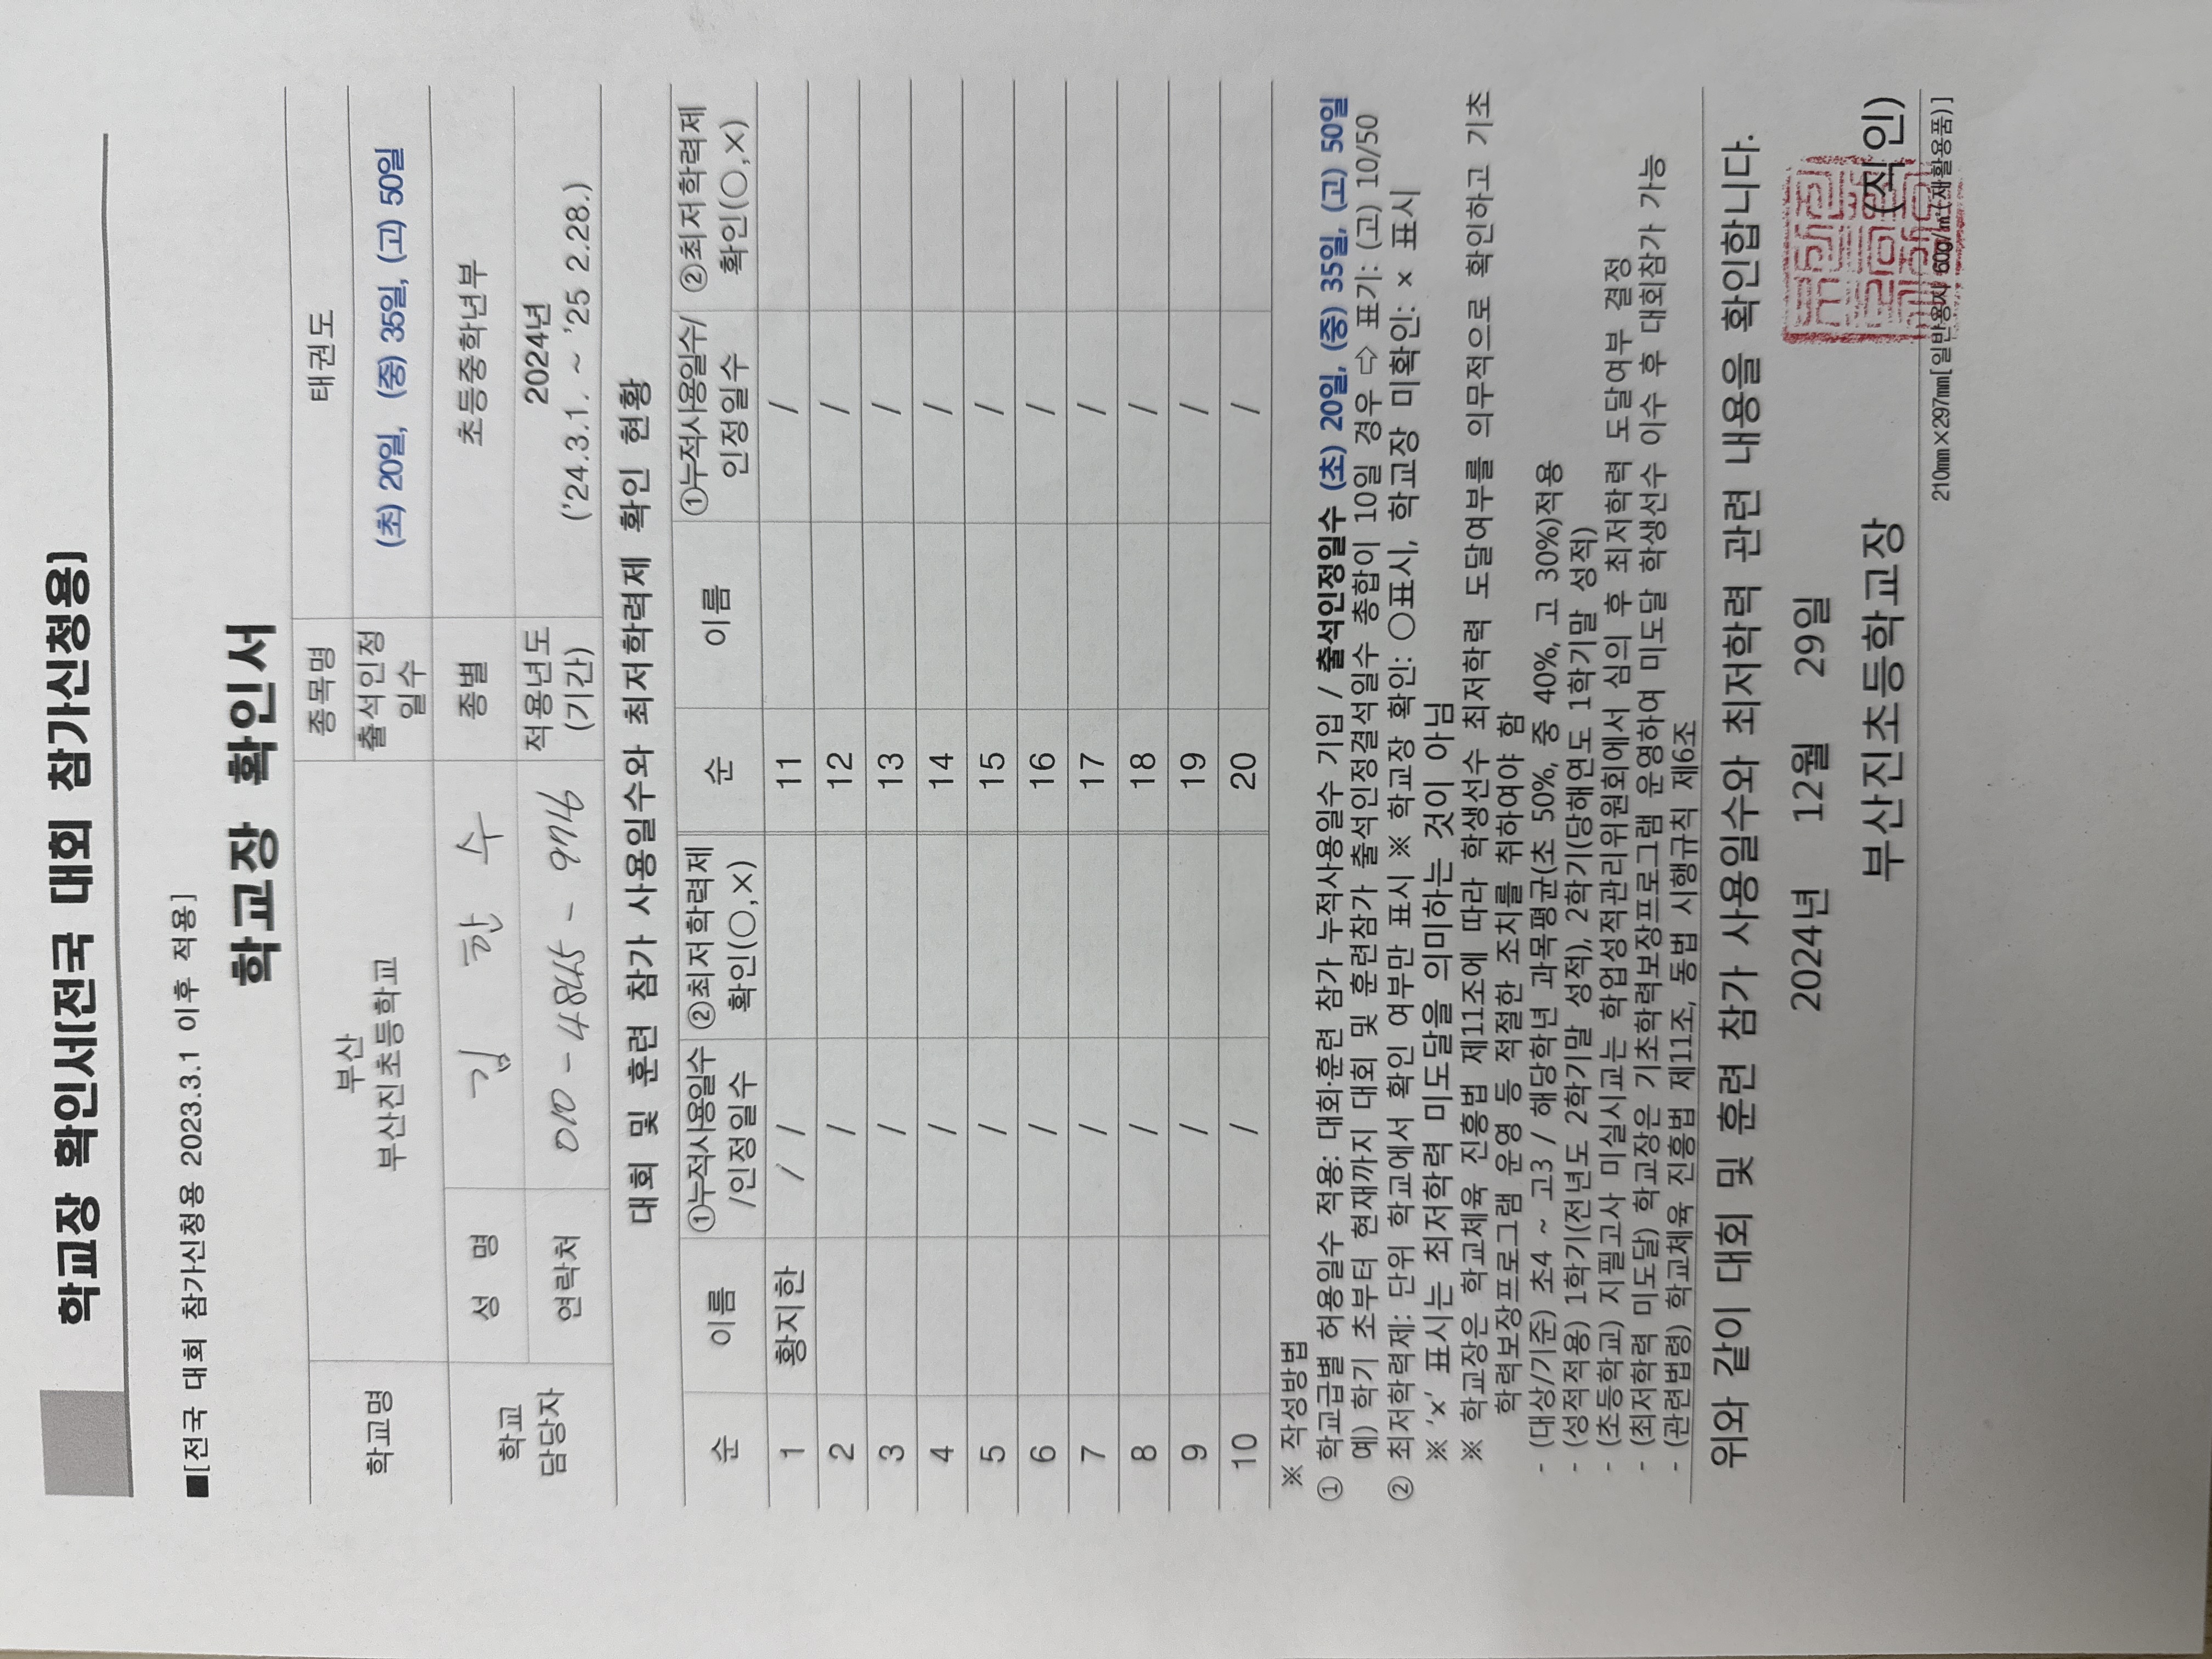 학교장 확인서[전국 대회 참가신청용]
■[전국 대회 참가신청용 2023.3.1 이후 적용]
학교장 확인서
학교명
부산
부산진초등학교
종목명
태권도
출석인정
일수
(초) 20일, (중) 35일, (고) 50일
학교
담당자
성 명
김 한 수
종별
초등중학년부
연락처
010 - 4845 -
적용년도
(기간)
2024년
('24.3.1. ~ '25 2.28.)
대회 및 훈련 참가 사용일수와 최저학력제 확인 현황
순 이름 ①누적사용일수 ②최저학력제 순 이름 ①누적사용일수/ ②최저학력제
/인정일수 확인(○,×) 인정일수 확인(○,×)
1 황지한 / / 11 /
2 / 12 /
3 / 13 /
4 / 14 /
5 / 15 /
6 / 16 /
7 / 17 /
8 / 18 /
9 / 19 /
10 / 20 /
※ 작성방법
① 학교급별 허용일수 적용: 대회·훈련 참가 누적사용일수 기입 / 출석인정일수 (초) 20일, (중) 35일, (고) 50일
예) 학기 초부터 현재까지 대회 및 훈련참가 출석인정결석일수 총합이 10일 경우 ⇨ 표기: (고) 10/50
② 최저학력제: 단위 학교에서 확인 여부만 표시 ※ 학교장 확인: ○표시, 학교장 미확인: × 표시
※ 'x' 표시는 최저학력 미도달을 의미하는 것이 아님
※ 학교장은 학교체육 진흥법 제11조에 따라 학생선수 최저학력 도달여부를 의무적으로 확인하고 기초
학력보장프로그램 운영 등 적절한 조치를 취하여야 함
- (대상/기준) 초4 ~ 고3 / 해당학년 과목평균(초 50%, 중 40%, 고 30%)적용
- (성적적용) 1학기(전년도 2학기말 성적), 2학기(당해연도 1학기말 성적)
- (초등학교) 지필고사 미실시교는 학업성적관리위원회에서 심의 후 최저학력 도달여부 결정
- (최저학력 미도달) 학교장은 기초학력보장프로그램 운영하여 미도달 학생선수 이수 후 대회참가 가능
- (관련법령) 학교체육 진흥법 제11조, 동법 시행규칙 제6조
위와 같이 대회 및 훈련 참가 사용일수와 최저학력 관련 내용을 확인합니다.
2024년 12월 29일
부산진초등학교장 (직인)
210㎜×297㎜[일반용지 60g/㎡(재활용품)]